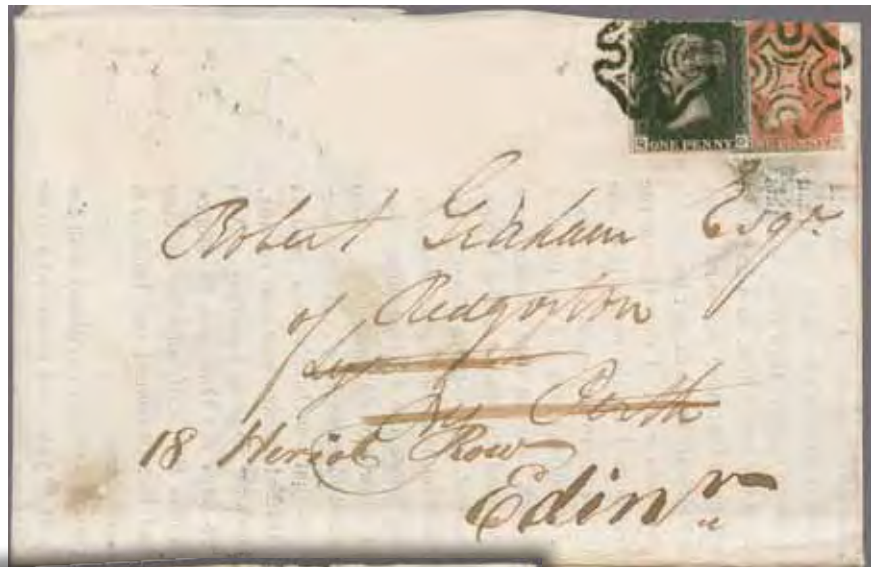 ONE PENNY
Robert Graham Esqr.
of Redgorton
by Perth
18 Heriot Row
Edinr.